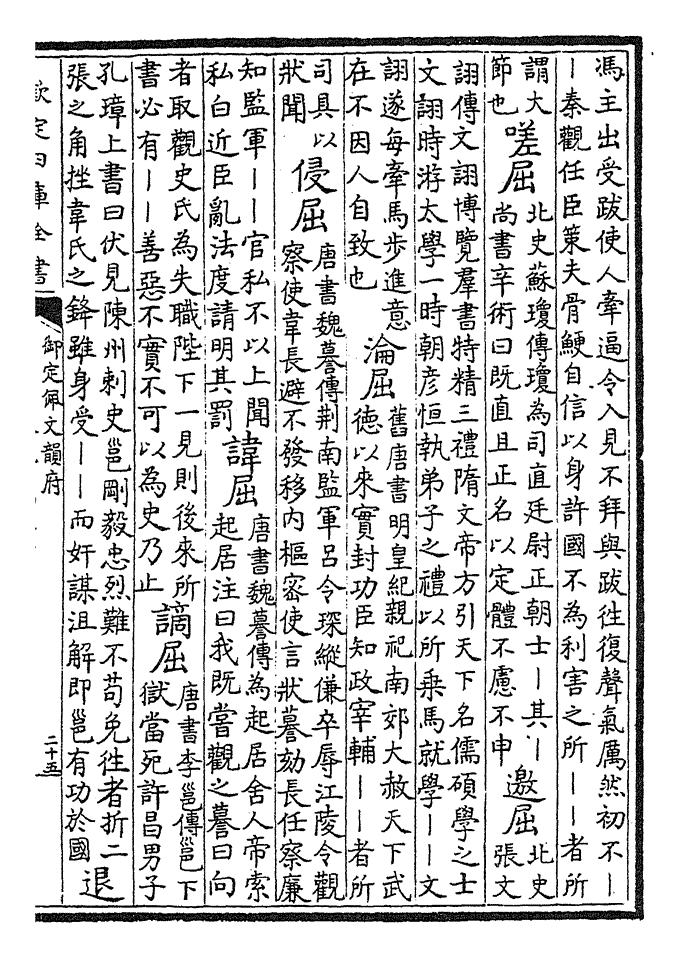 馮主出受跋使人牽逼令入見不拜與跋往復聲氣厲然初不｜
｜秦觀任臣策夫骨鯁自信以身許國不為利害之所｜｜者所
謂大
節也
嗟屈
北史蘇瓊傳瓊為司直廷尉正朝士｜其｜
尚書辛術曰既直且正名以定體不慮不申
邀屈
北史
張文
詡傳文詡博覽羣書特精三禮隋文帝方引天下名儒碩學之士
文詡時游太學一時朝彥恒執弟子之禮以所乗馬就學｜｜文
詡遂每牽馬步進意
在不因人自致也
淪屈
舊唐書明皇紀親祀南郊大赦天下武
德以來實封功臣知政宰輔｜｜者所
司具以
狀聞
侵屈
唐書魏謩傳荆南監軍呂令琛縱傔卒辱江陵令觀
察使韋長避不發移内樞宻使言狀謩劾長任察廉
知監軍｜｜官私不以上聞
私白近臣亂法度請明其罰
諱屈
唐書魏謩傳為起居舍人帝索
起居注曰我既嘗觀之謩曰向
者取觀史氏為失職陛下一見則後來所
書必有｜｜善惡不實不可以為史乃止
謫屈
唐書李邕傳邕下
獄當死許昌男子
孔璋上書曰伏見陳州刺史邕剛毅忠烈難不苟免往者折二
張之角挫韋氏之鋒雖身受｜｜而奸謀沮解即邕有功於國
退
欽定四庫全書
御定佩文韻府
二十五